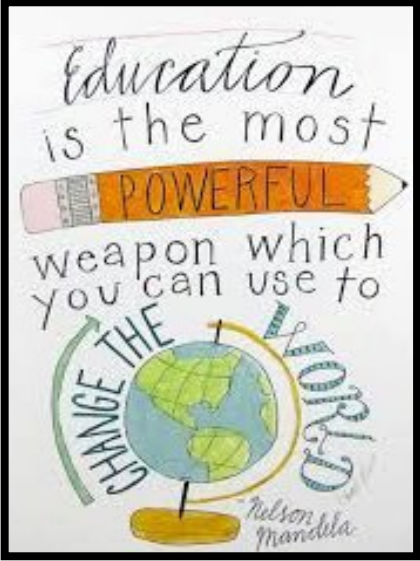 Education
is the most
POWERFUL
weapon which
you can use to
CHANGE THE
WORLD
Nelson
Mandela